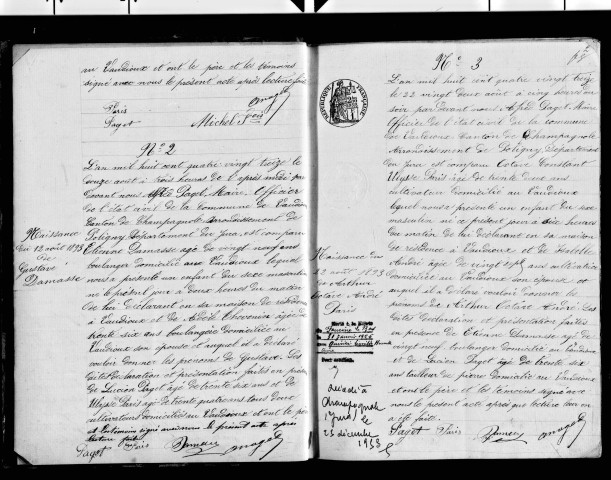 au Vaudioux et ont le père et les témoins
signé avec nous le présent acte après lecture faite
Paris
Paget Michel
Nº 2
L'an mil huit cent quatre vingt treize le
douze août à trois heures de l'après midi par
devant nous Paget, Maire Officier
de l'état civil de la commune de Vaudioux
Canton de Champagnole Arrondissement de
Poligny Département du Jura, est comparu
Etienne Damasse âgé de vingt neuf ans
boulanger domicilié au Vaudioux lequel
nous a présenté un enfant du sexe masculin
né le présent jour à deux heures du matin
de lui déclarant en sa maison de résidence
à Vaudioux et de Adèle Thevenin âgée de
trente six ans boulangère domiciliée au
Vaudioux son épouse et auquel il a déclaré
vouloir donner les prénoms de Gustave. Les
dites déclaration et présentation faites en présence
de Lucien Paget âgé de trente six ans et de
Ulysse Paris âgé de trente quatre ans tous deux
cultivateurs domiciliés au Vaudioux et ont le père
et les témoins signé avec nous le présent acte après
lecture faite
Paget Paris Damasse
Naissance
du 12 août 1893
de
Gustave
Damasse
RÉPUBLIQUE FRANÇAISE
Nº 3
L'an mil huit cent quatre vingt treize
le 22 vingt deux août à cinq heures du
soir par devant nous Paget, Maire
Officier de l'état civil de la commune
de Vaudioux Canton de Champagnole
Arrondissement de Poligny, Département
du Jura est comparu Octave Constant
Ulysse Paris âgé de trente deux ans
cultivateur domicilié au Vaudioux
lequel nous a présenté un enfant du sexe
masculin né ce présent jour à six heures
du matin de lui déclarant en sa maison
de résidence à Vaudioux et de
André âgée de vingt sept ans cultivatrice
domiciliée au Vaudioux son épouse et
auquel il a déclaré vouloir donner les
prénoms de Arthur Octave André. Les
dites déclaration et présentation faites
en présence de Etienne Damasse âgé de
vingt neuf boulanger domicilié au Vaudioux
et de Lucien Paget âgé de trente six
ans tailleur de pierre domicilié au Vaudioux
et ont le père et les témoins signé avec
nous le présent acte après que lecture leur en
a été faite
Paget Paris Damasse
Naissance du
22 août 1893
de Arthur
Octave André
Paris
décédé à
Champagnole
(Jura) le
23 décembre
1953